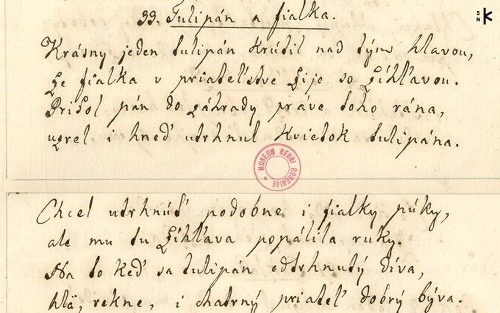 39. Tulipán a fialka.
Krásny jeden tulipán krútil nad tým hlavou,
že fialka v priateľstve žije so žihľavou.
Prišol pán do záhrady práve toho rána,
uzrel i hneď utrhnul kvietok tulipána.
MUSEUM REGNI BOHEMIAE
Chcel utrhnúť podobne i fialky púky,
ale mu tu žihľava popálila ruky.
Na to keď sa tulipán odtrhnutý díva,
hľa, rekne, i chatrný priateľ dobrý býva.